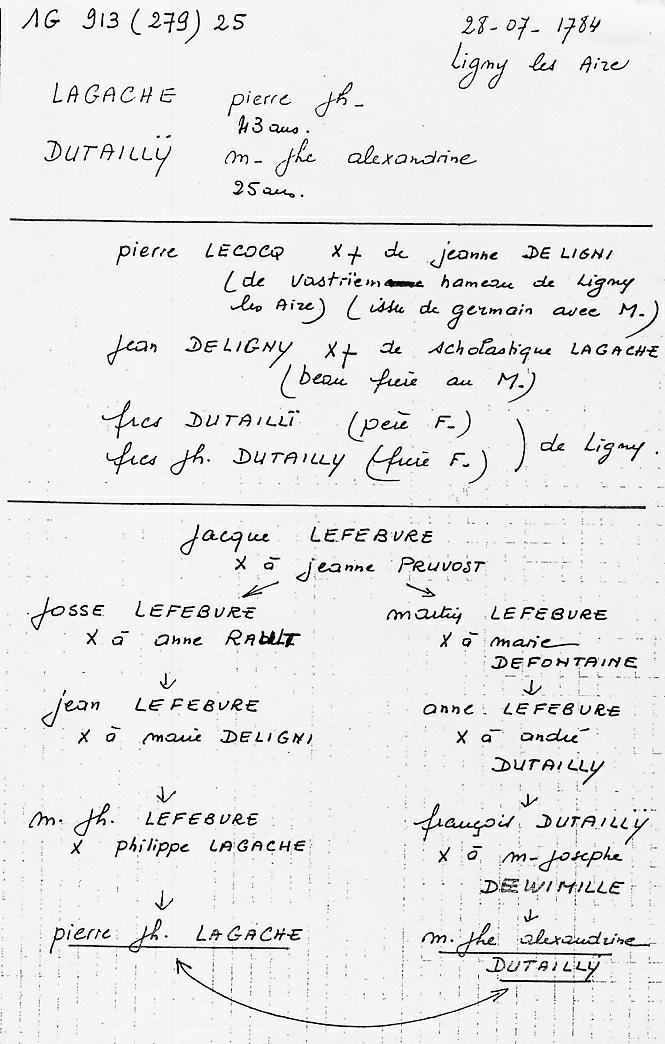 1G 913 (279) 25
28-07-1784
Ligny les Aire
LAGACHE pierre jh-
43 ans.
DUTAILLŸ m- jhe alexandrine
25 ans.
pierre LECOCQ X+ de jeanne DE LIGNI
(de Vastriem hameau de Ligny
les Aire) (issu de germain avec M.)
jean DELIGNY X+ de scholastique LAGACHE
(beau frère au M.)
fres DUTAILLÏ (père F-)
fres jh. DUTAILLY (frère F-) ) de Ligny.
Jacque LEFEBURE
X à jeanne PRUVOST
JOSSE LEFEBURE martin LEFEBURE
X à anne RAULT X à marie
DEFONTAINE
jean LEFEBURE anne. LEFEBURE
X à marie DELIGNI X à andré
DUTAILLY
m. jh. LEFEBURE françois DUTAILLŸ
X philippe LAGACHE X à m-josephe
DEWIMILLE
pierre jh. LAGACHE m. jhe alexandrine
DUTAILLŸ